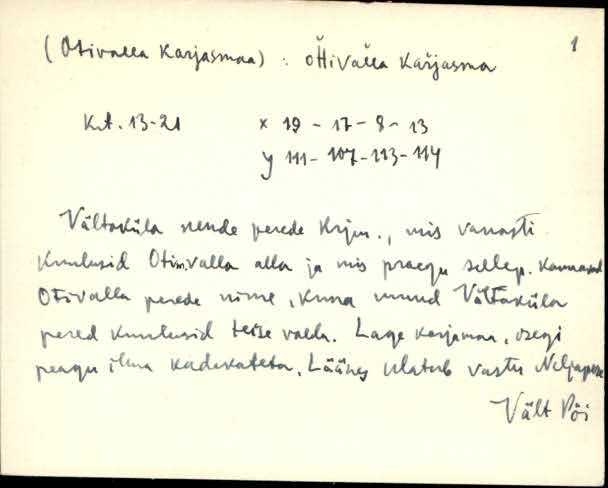 1
(Otivalla Karjasmaa) : Ot̆t̆iva͔lla Kařjasma
Krt. 13-21 x 19 - 17 - 8 - 13
y 111 - 107 - 113 - 114
Vältaküla nende perede krjm., mis vanasti
kuulusid Otim.valla alla ja mis praegu sellep. kannavad
Otivalla perede nime, kuna muud Vältaküla
pered kuulusid teise valda. Lage karjamaa, osegi
peagu ilma kadakateta. Läänes ulatub vastu Neljapere
Vält Pöi